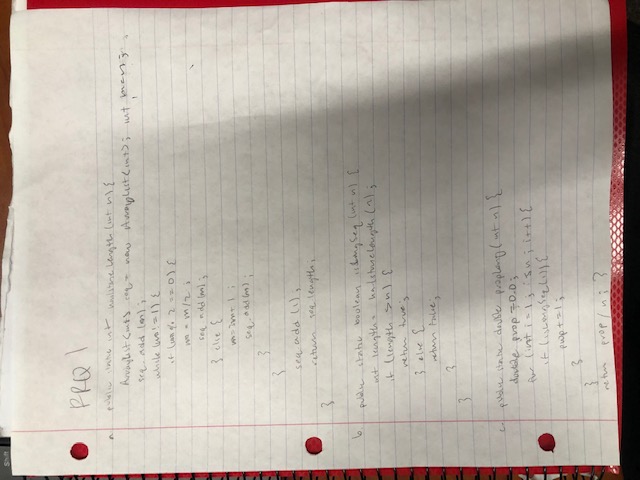 FRQ 1
a public static int hailstoneLength (int n) {
ArrayList<int> seq = new ArrayList<int>; int m=n;
seq.add(m);
while (m!=1) {
if (m%2 == 0) {
m = m/2;
seq.add(m);
} else {
seq.add(m);
}
}
seq.add(1);
return seq.length;
}
b public static boolean isLongSeq (int n) {
int length = hailstoneLength(n);
if (length >n) {
return true;
} else {
return true;
}
}
c public static double propLong (int n) {
double prop = 0.0;
for (int i = 1; i ≤ n; i++) {
if (isLongSeq(i)) {
prop += 1;
}
}
return prop/n; }
shift